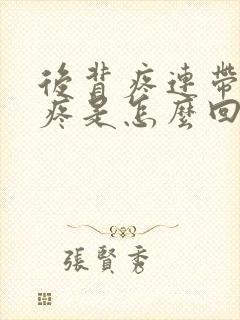 後背疼連帶
疼是怎麼回
張賢秀